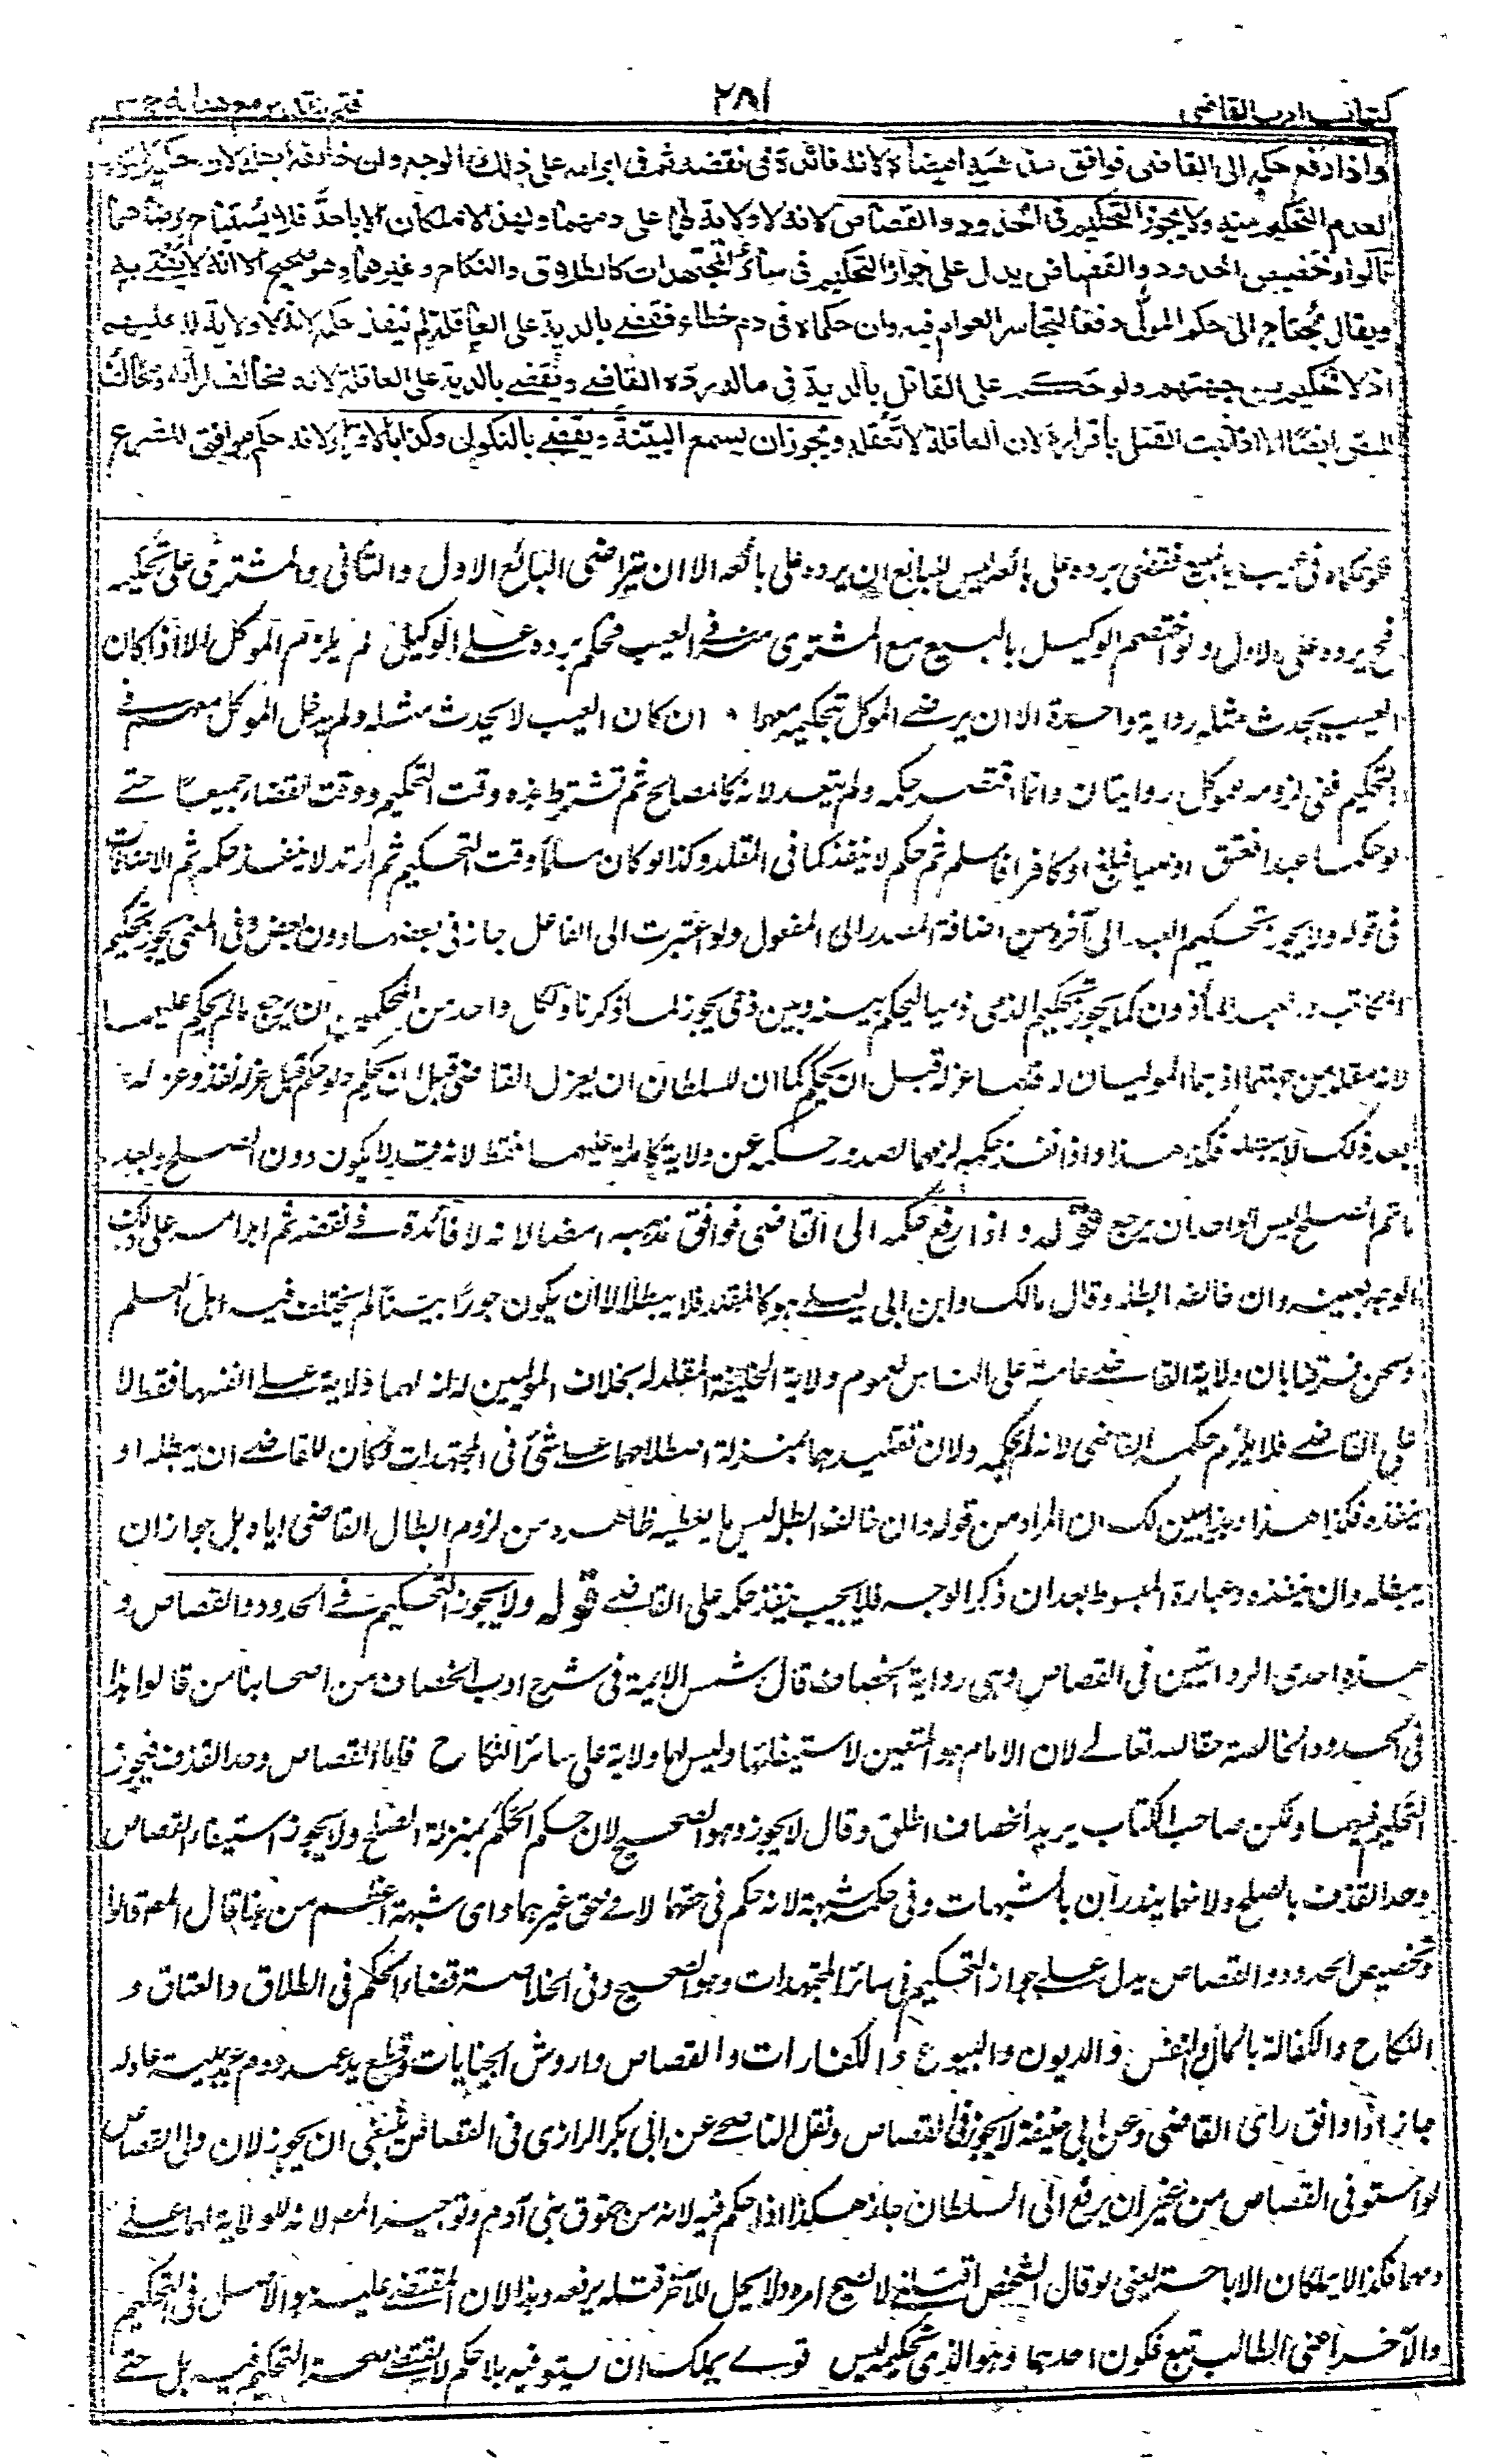 كتاب ادب القاضى
٢٨١
فتح القدير مع هدايه ج ٣
واذا رفع حكمه الى القاضى فوافق مذهبه امضاه لانه لا فائدة فى نقضه ثم فى ابرامه على ذلك الوجه وان خالفه ابطله لان حكمه لا يلزمه
لعدم التحكيم منه ولا يجوز التحكيم فى الحدود والقصاص لانه لا ولاية لهما على دمهما ولهذا لا يملكان الاباحة فلا يستباح برضاهما
قالوا وتخصيص الحدود والقصاص يدل على جواز التحكيم فى سائر المجتهدات كالطلاق والنكاح وغيرهما وهو صحيح الا انه لا يفتى به
ويقال يحتاج الى حكم المولى دفعا لتجاسر العوام فيه وان حكماه فى دم خطاء فقضى بالدية على العاقلة لم ينفذ حكمه لانه لا ولاية له عليهم
اذ لا تحكيم من جهتهم ولو حكم على القاتل بالدية فى ماله رده القاضى ويقضى بالدية على العاقلة لانه مخالف لرأيه ومخالف
للنص ايضا الا اذا ثبت القتل باقراره لان العاقلة لا تعقله ويجوز ان يسمع البينة ويقضى بالنكول وكذا بالاقرار لانه حكم موافق للشرع
فلو حكماه فى عيب بالمبيع فقضى برده على بائعه ليس للبائع ان يرده على بائعه الا ان يتراضى البائع الاول والثانى والمشترى على تحكيمه
فح يرده على الاول ولو اختصم الوكيل بالبيع مع المشترى منه فى العيب فحكم برده على الوكيل لم يلزم الموكل الا اذا كان
العيب يحدث مثله رواية واحدة الا ان يرضى الموكل بتحكيمه معهما ان كان العيب لا يحدث مثله ولم يدخل الموكل معهم فى
التحكيم ففى لزومه للموكل روايتان وانما اقتصر حكمه ولم يتعد لانه كالمصالح ثم تشترط هذه وقت التحكيم ووقت القضاء جميعا حتى
لو حكما عبدا فعتق او صبيا فبلغ او كافرا فاسلم ثم حكم لا ينفذ كما فى المقلد وكذا لو كان مسلما وقت التحكيم ثم ارتد لا ينفذ حكمه ثم الاضافات
فى قوله ولا يجوز تحكيم العبد الى آخره من اضافة المصدر الى المفعول ولو اعتبرت الى الفاعل جاز فى بعضها دون بعض وفى المغنى يجوز تحكيم
المكاتب والعبد المأذون كما يجوز تحكيم الذمى ذميا ليحكم بينه وبين ذمى يجوز لما ذكرنا ولكل واحد من المحكمين ان يرجع ما لم يحكم عليهما
لانه مقلد من جهتهما اذ هما الموليان له فلهما عزله قبل ان يحكم كما ان للسلطان ان يعزل القاضى قبل ان يحكم ولو حكم قبل عزله نفذ وعزله
بعد ذلك لا يبطله فكذا هذا واذا نفذ حكمه لزمهما لصدور حكمه عن ولاية كاملة عليهما فقط لانه قد لا يكون دون الصلح وبعد
ما تم الصلح ليس لواحد ان يرجع قوله واذا رفع حكمه الى القاضى فوافق مذهبه امضاه لانه لا فائدة فى نقضه ثم ابرامه على ذلك
الوجه بعينه وان خالفه ابطله وقال مالك وابن ابى ليلى هو كالمقلد فلا يبطله الا ان يكون جورا بينا لم يختلف فيه اهل العلم
ونحن فرقنا بان ولاية القاضى عامة على الناس لعموم ولاية الخليفة المقلد له بخلاف الموليين له لانه لهما ولاية على انفسهما فقط لا
على القاضى فلا يلزم حكمه القاضى لانه لم يحكمه ولان تقليدهما بمنزلة اصطلاحهما على شئ فى المجتهدات فكان للقاضى ان يبطله او
ينفذه فكذا هذا وبهذا يبين لك ان المراد من قوله وان خالفه ابطله ليس ما يعطيه ظاهره من لزوم ابطال القاضى اياه بل جواز ان
يبطله وان ينفذه وعبارة المبسوط بعد ان ذكر الوجه فلا يجب ينفذ حكمه على القاضى قوله ولا يجوز التحكيم فى الحدود والقصاص و
هذه احدى الروايتين فى القصاص وهى رواية الخصاف قال شمس الايمة فى شرح ادب الخصاف من اصحابنا من قالوا هذا
فى الحدود الخالصة حقا لله تعالى لان الامام هو المتعين لاستيفائها وليس لهما ولاية على سائر الناس فاما القصاص وحد القذف فيجوز
التحكيم فيهما ولكن صاحب الكتاب يريد الخصاف اطلق وقال لا يجوز وهو الصحيح لان حكم الحكم بمنزلة الصلح ولا يجوز استيفاء القصاص
وحد القذف بالصلح ولانهما يندرآن بالشبهات وفى حكمه شبهة لانه حكم فى حقهما لا فى حق غيرهما واى شبهة اعظم من هذا قال المص قالوا
وتخصيص الحدود والقصاص يدل على جواز التحكيم فى سائر المجتهدات وهو الصحيح وفى الخلاصة قضاء الحكم فى الطلاق والعتاق و
النكاح والكفالة بالمال والنفس والديون والبيوع والكفارات والقصاص واروش الجنايات وقطع يد عمد ودم عمد ببينة عادلة
جاز اذا وافق رأى القاضى وعن ابى حنيفة لا يجوز فى القصاص ونقل الناصحى عن ابى بكر الرازى فى القصاص ينبغى ان يجوز لان ولى القصاص
لو استوفى القصاص من غير ان يرفع الى السلطان جاز فكذا اذا حكم فيه لانه من حقوق بنى آدم وتوجيه المص لانه لا ولاية لهما على
دمهما فكذا لا يملكان الاباحة يعنى لو قال لشخص اقتلنى لا يصح امره ولا يحل للآخر قتله يرفعه وهذا لان المقتضى عليه هو الاصل فى التحكيم
والآخر اعنى الطالب تبع فكون احدهما وهو الذى تحكيمه ليس قوى يملك ان يستوفيه بلا حكم لا يقتضى صحة التحكيم فيه بل حتى